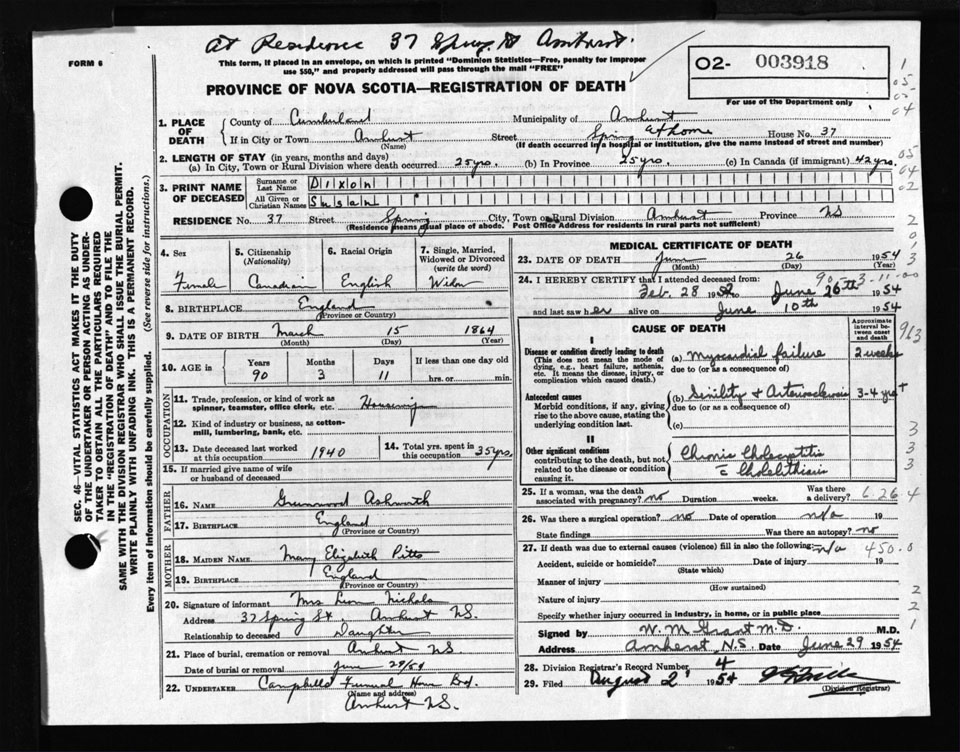 At Residence 37 Spring St Amherst.
FORM 6
This form, if placed in an envelope, on which is printed "Dominion Statistics—Free, penalty for improper
use $50," and properly addressed will pass through the mail "FREE"
PROVINCE OF NOVA SCOTIA—REGISTRATION OF DEATH
O2- 003918
For use of the Department only
1. PLACE OF DEATH
County of Cumberland Municipality of Amherst
If in City or Town Amherst Street Spring At Home House No. 37
(Name) (If death occurred in a hospital or institution, give the name instead of street and number)
2. LENGTH OF STAY (in years, months and days)
(a) In City, Town or Rural Division where death occurred 25 yrs. (b) In Province 25 yrs. (c) In Canada (if immigrant) 42 yrs.
3. PRINT NAME OF DECEASED
Surname or Last Name Dixon
All Given or Christian Names Susan
RESIDENCE No. 37 Street Spring City, Town or Rural Division Amherst Province NS
(Residence means usual place of abode. Post Office Address for residents in rural parts not sufficient)
4. Sex
Female
5. Citizenship
(Nationality)
Canadian
6. Racial Origin
English
7. Single, Married,
Widowed or Divorced
(write the word)
Widow
8. BIRTHPLACE England
(Province or Country)
9. DATE OF BIRTH March 15 1864
(Month) (Day) (Year)
10. AGE in
Years Months Days If less than one day old
90 3 11 hrs. or min.
OCCUPATION
11. Trade, profession, or kind of work as
spinner, teamster, office clerk, etc. Housewife
12. Kind of industry or business, as cotton-
mill, lumbering, bank, etc.
13. Date deceased last worked
at this occupation 1940
14. Total yrs. spent in
this occupation 35 yrs.
15. If married give name of wife
or husband of deceased
FATHER
16. NAME Greenwood Ashworth
17. BIRTHPLACE England
(Province or Country)
MOTHER
18. MAIDEN NAME Mary Elizabeth Pitts
19. BIRTHPLACE England
(Province or Country)
20. Signature of informant Mrs Leon Nichols
Address 37 Spring St Amherst NS.
Relationship to deceased Daughter
21. Place of burial, cremation or removal Amherst NS
Date of burial or removal June 29/54
22. UNDERTAKER Campbells Funeral Home Bxf.
(Name and address)
Amherst NS.
MEDICAL CERTIFICATE OF DEATH
23. DATE OF DEATH June 26 1954
(Month) (Day) (Year)
90-3-11-00
24. I HEREBY CERTIFY that I attended deceased from:
Feb. 28 1952 to June 26th 1954
and last saw her alive on June 10th 1954
CAUSE OF DEATH
Approximate
interval be-
tween onset
and death
I
Disease or condition directly leading to death
(This does not mean the mode of
dying, e.g., heart failure, asthenia,
etc. It means the disease, injury, or
complication which caused death.)
(a) Myocardial failure 2 weeks
due to (or as a consequence of)
Antecedent causes
Morbid conditions, if any, giving
rise to the above cause, stating the
underlying condition last.
(b) Senility & Arteriosclerosis 3-4 yrs +
due to (or as a consequence of)
(c)
II
Other significant conditions
contributing to the death, but not
related to the disease or condition
causing it.
Chronic Cholecystitis
c̄ Cholelithiasis
25. If a woman, was the death
associated with pregnancy? no Duration weeks. Was there
a delivery? 6-26-4
26. Was there a surgical operation? no Date of operation n/a 19
State findings Was there an autopsy? no
27. If death was due to external causes (violence) fill in also the following: n/a 450.0
Accident, suicide or homicide? Date of injury 19
(State which)
Manner of injury
(How sustained)
Nature of injury
Specify whether injury occurred in industry, in home, or in public place
Signed by W. M Grant M.D. M.D.
Address Amherst, N.S. Date June 29 1954
28. Division Registrar's Record Number 4
29. Filed August 2 1954
(Division Registrar)
SEC. 46—VITAL STATISTICS ACT MAKES IT THE DUTY
OF THE UNDERTAKER OR PERSON ACTING AS UNDER-
TAKER TO OBTAIN ALL THE PARTICULARS REQUIRED
IN THE "REGISTRATION OF DEATH" AND TO FILE THE
SAME WITH THE DIVISION REGISTRAR WHO SHALL ISSUE THE BURIAL PERMIT.
WRITE PLAINLY WITH UNFADING INK. THIS IS A PERMANENT RECORD.
Every item of information should be carefully supplied. (See reverse side for instructions.)
1
05
02-
04
05
04
02
2
0
1
3
9/63
3
3
3
2
2
1